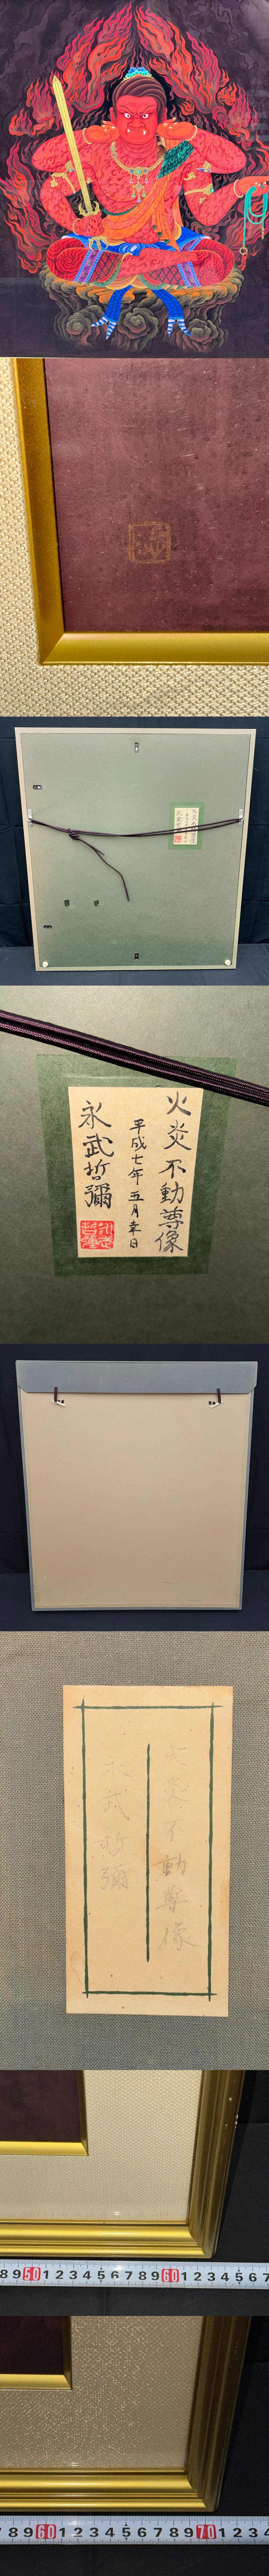 火炎不動尊像
平成七年五月幸日
永武哲彌
火炎不動尊像
永武哲彌
8 9 50 1 2 3 4 5 6 7 8 9 60 1 2 3 4 5 6 7
7 8 9 60 1 2 3 4 5 6 7 8 9 70 1 2 3 4